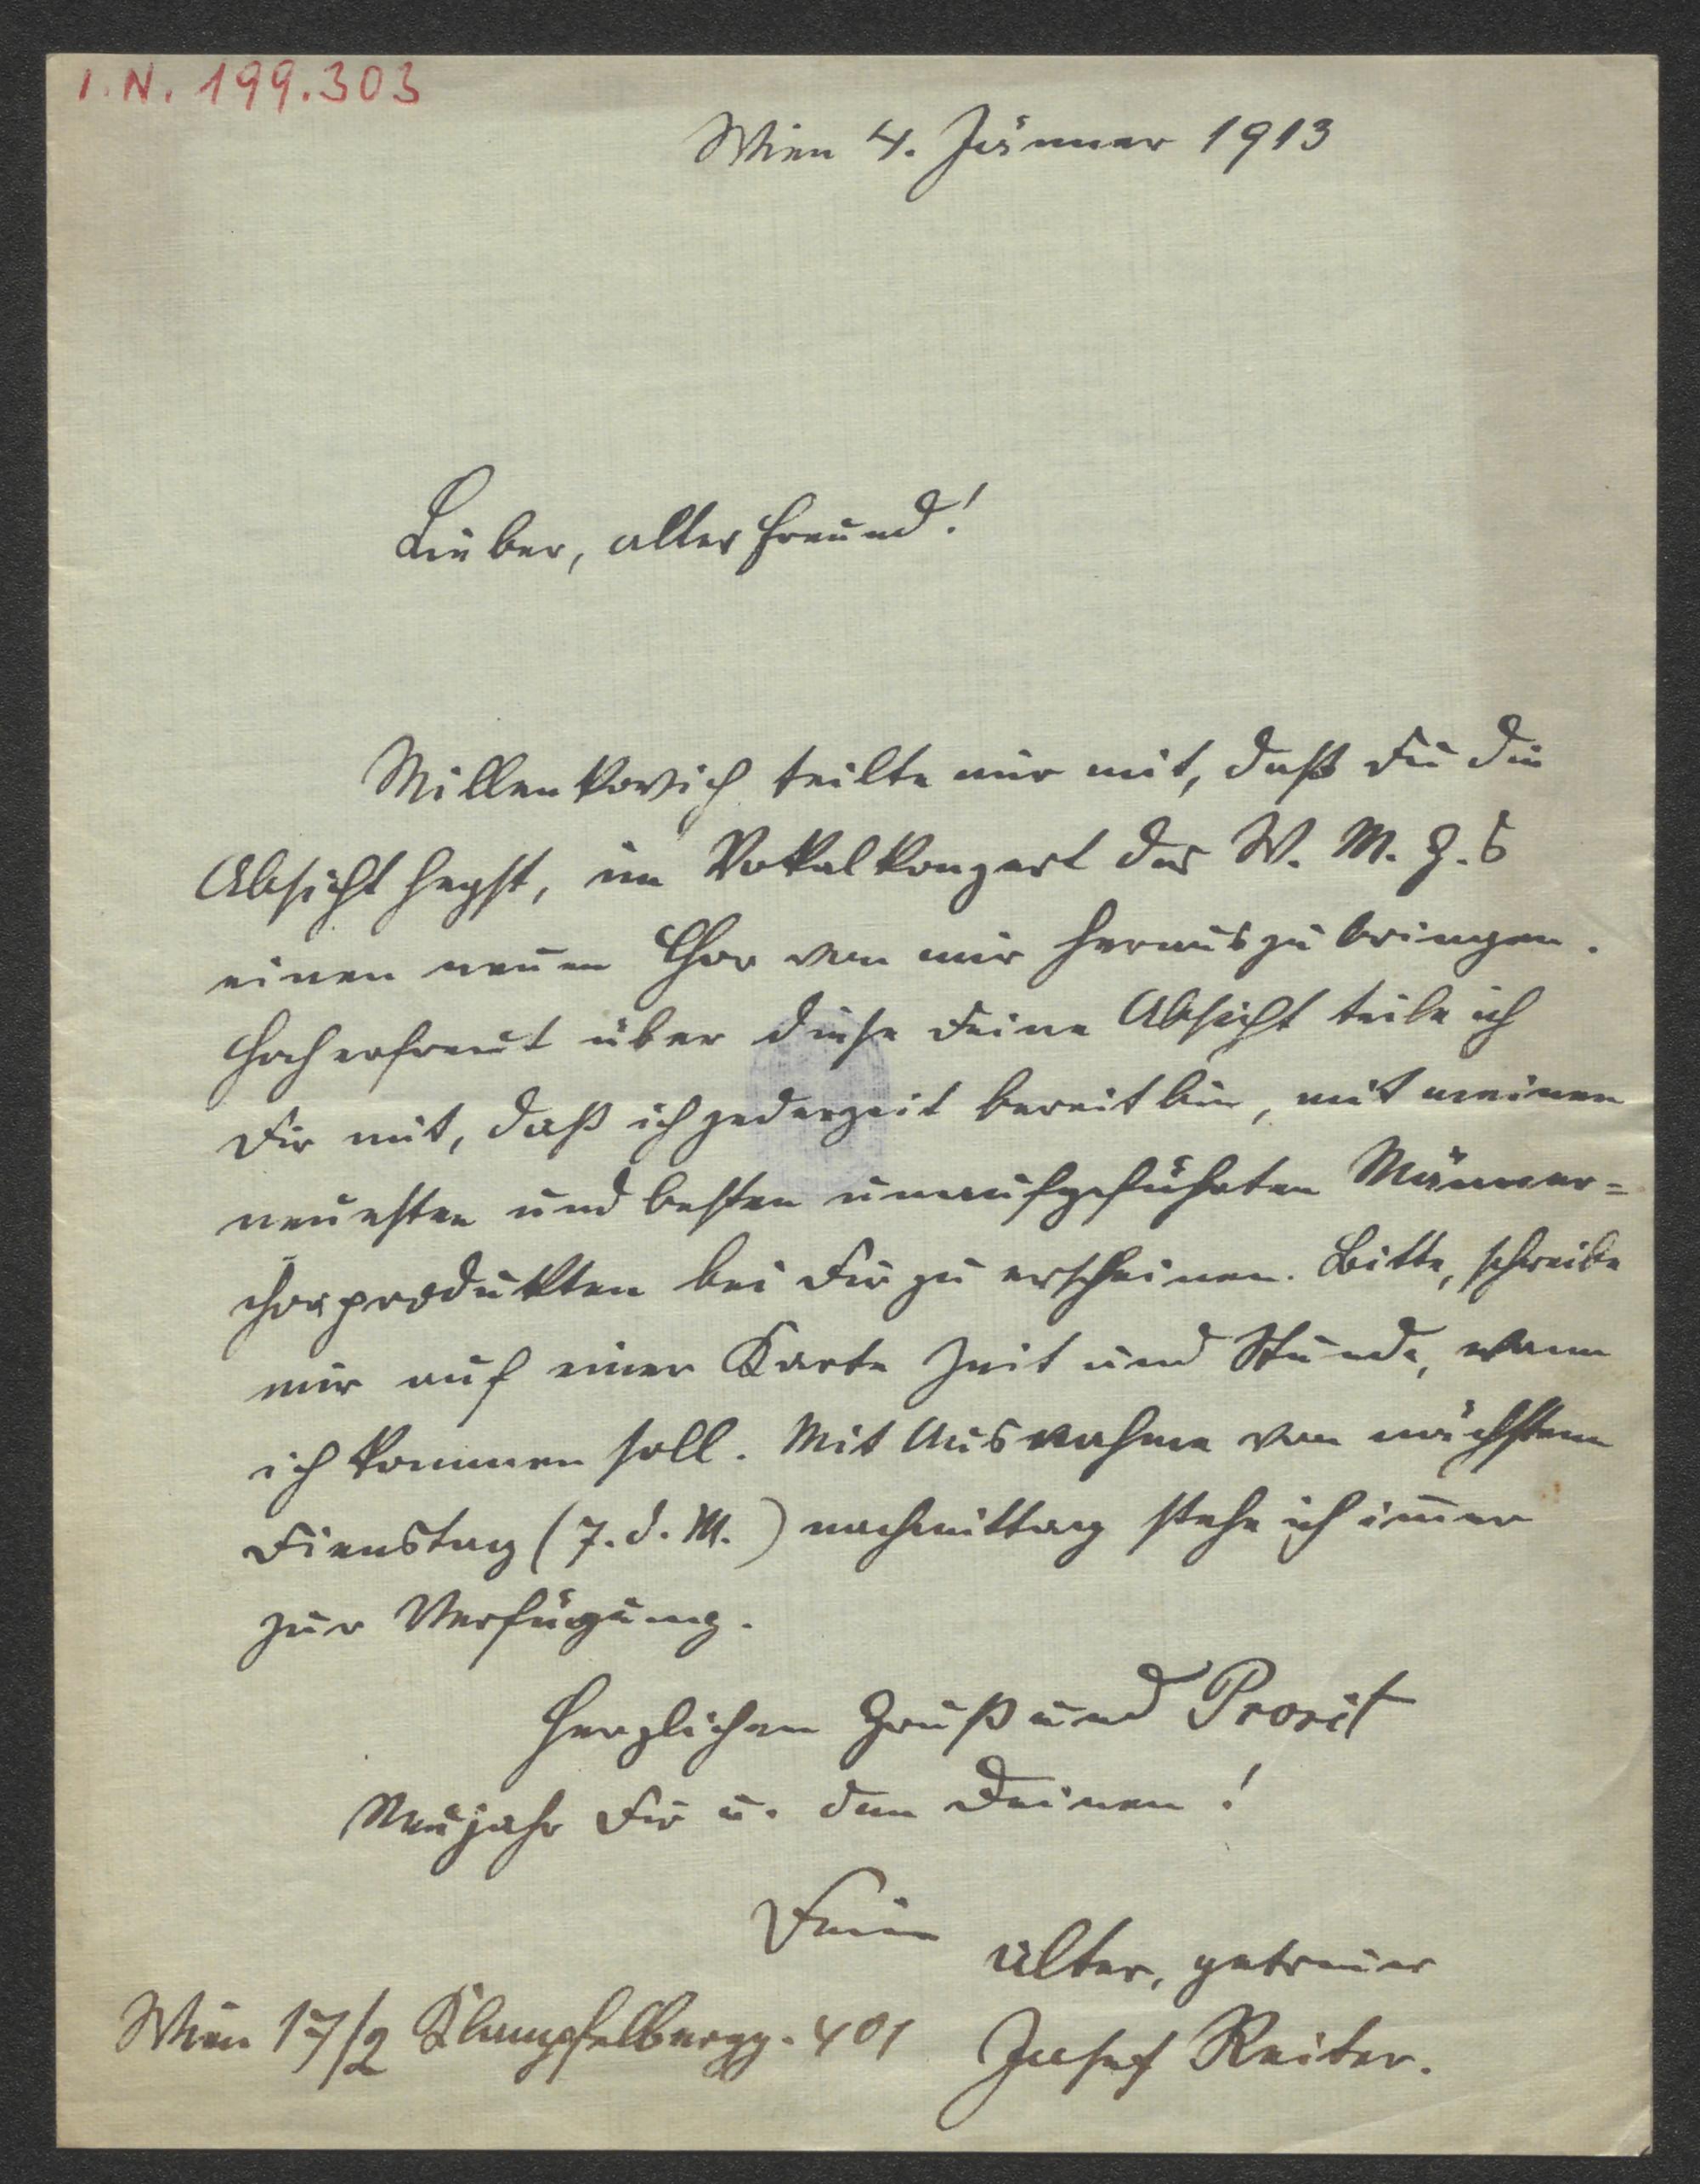 I.N. 199.303
Wien 4. Jänner 1913
Lieber, alter Freund!
Millenkovich teilte mir mit, daß Du die
Absicht hegst, im Vokalkonzert des W. M. G. V.
einen neuen Chor von mir herauszubringen.
Hocherfreut über diese Deine Absicht teile ich
Dir mit, daß ich jederzeit bereit bin, mit meinen
neuesten und besten unaufgeführten Männer=
chorprodukten bei Dir zu erscheinen. Bitte, schreibe
mir auf einer Karte Zeit und Stunde, wann
ich kommen soll. Mit Ausnahme von nächstem
Dienstag (7. d. M.) nachmittag stehe ich immer
zur Verfügung.
Herzlichen Gruß und Prosit
Neujahr Dir u. den Deinen!
Dein
alter, getreuer
Wien 17/2 401 Josef Reiter.